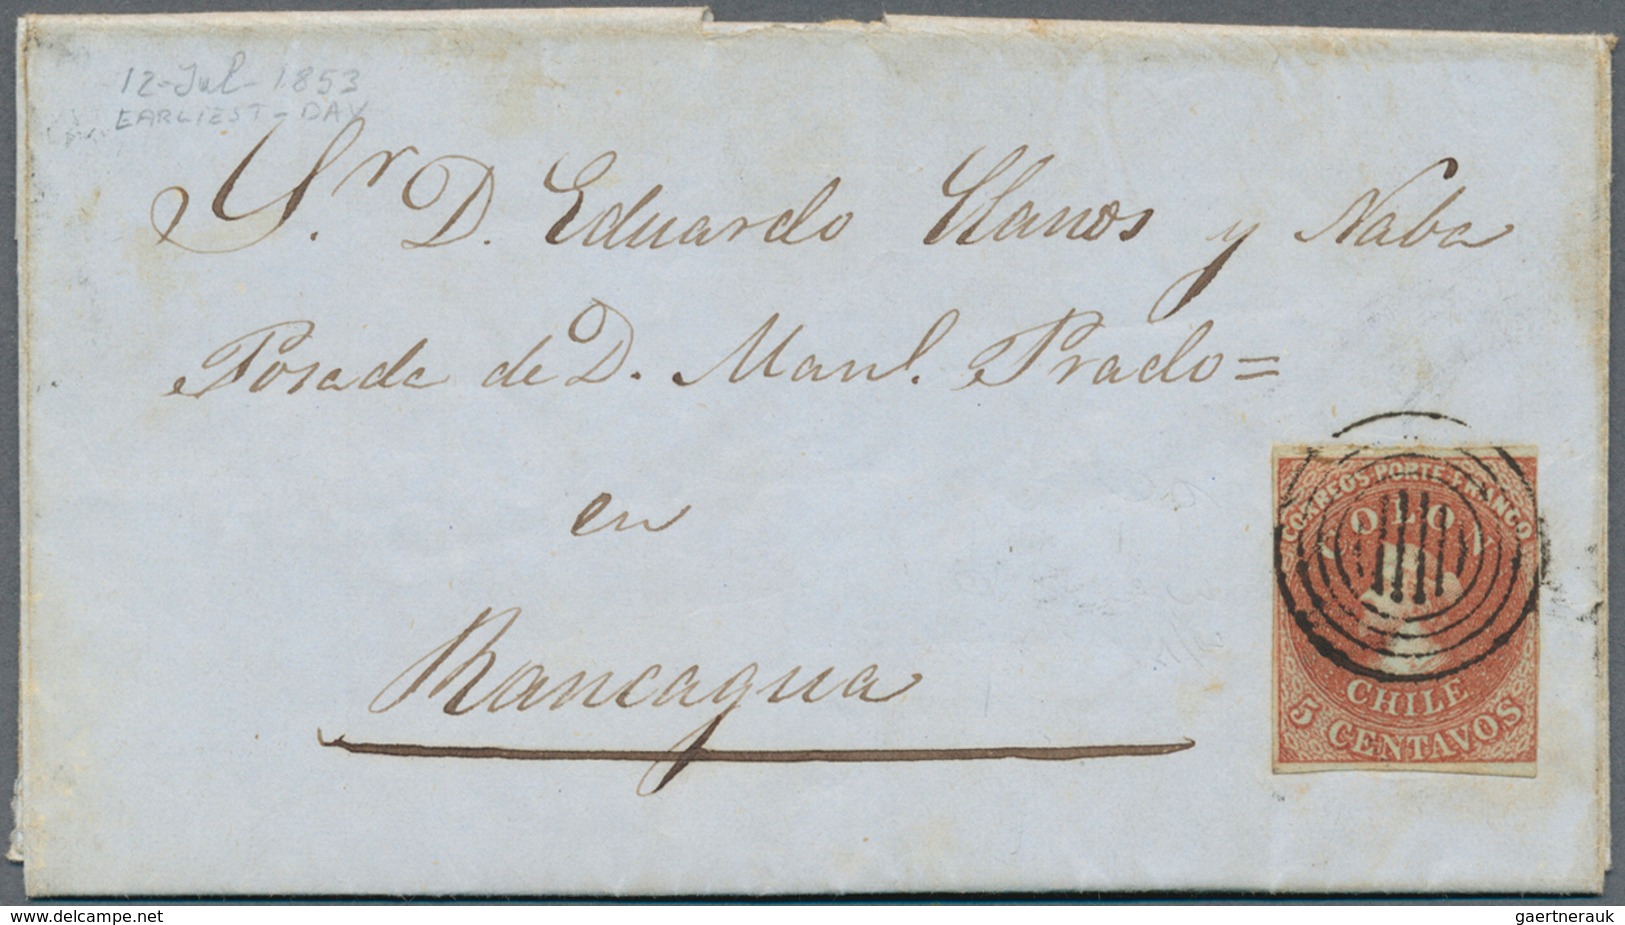 12-Jul-1853
EARLIEST-DAY
Sr. D. Eduardo Llanos y Naba
Posada de D. Manl. Prado=
en
Rancagua
CORREOS·PORTE·FRANCO
COLON
CHILE
5 CENTAVOS
delcampe.net
gaertnerauk